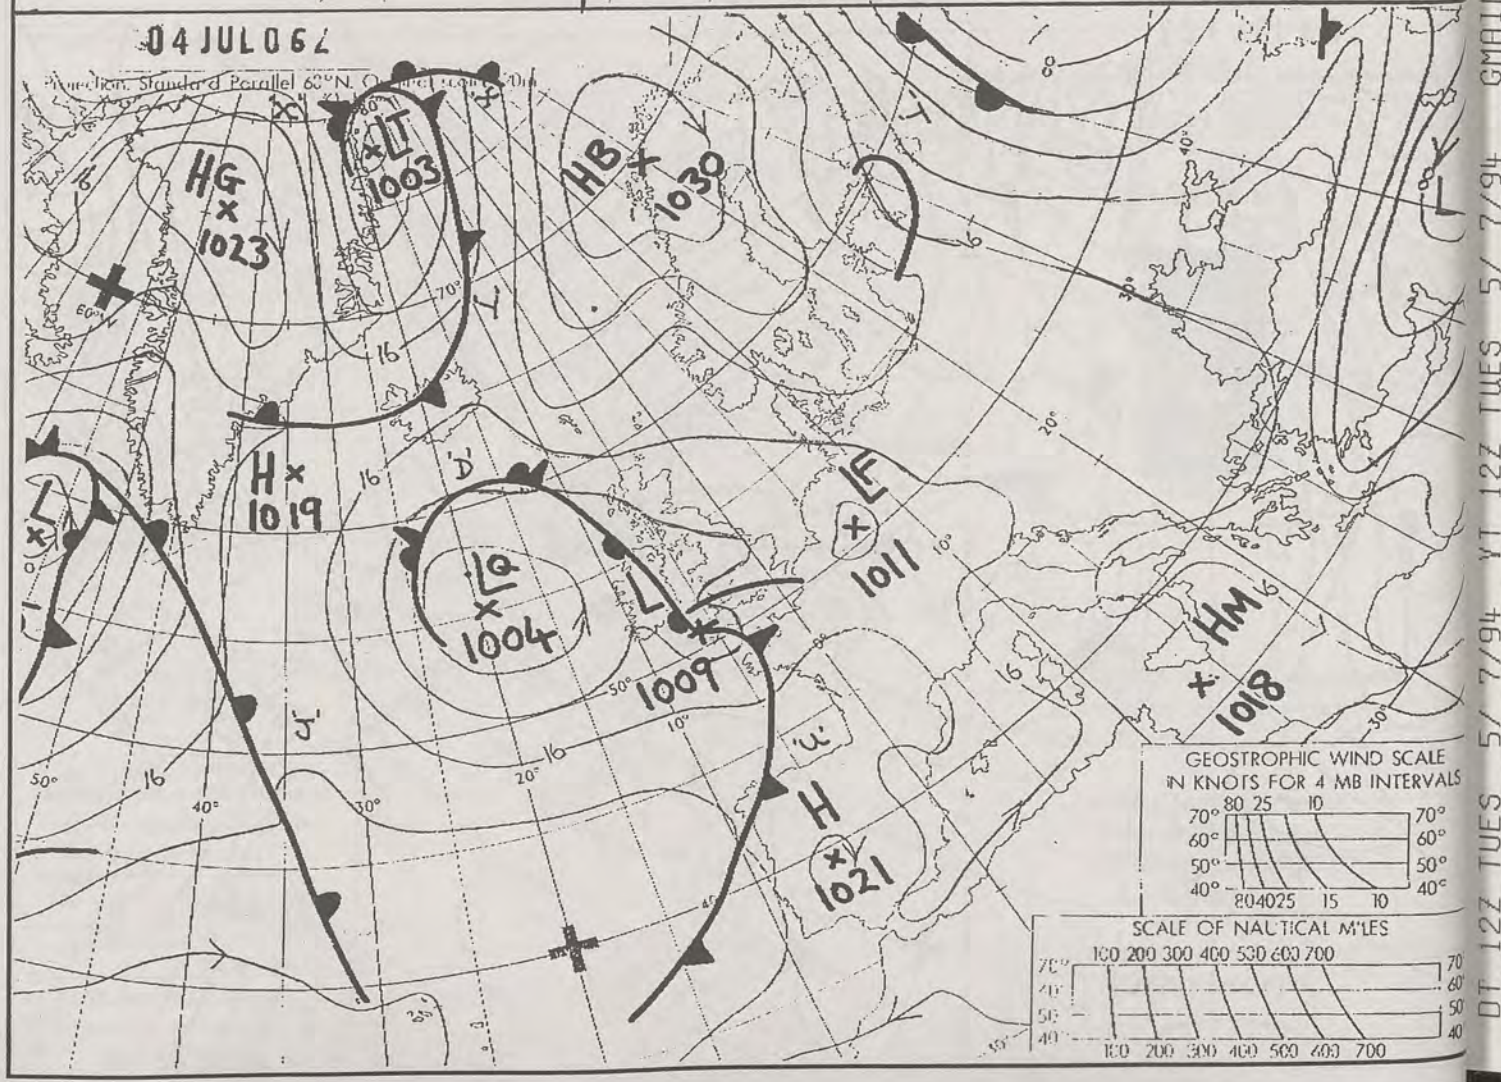 04 JUL 06Z
Projection. Standard Parallel 60°N.
HG
1023
LT
1003
HB
1030
L
16
60°N
80°
70°
16
H
1019
16
'D'
LQ
1004
L
1009
50°
10°
LF
1011
10°
0°
'T'
8
40°
30°
20°
16
HM
1018
30°
L
'J'
50°
40°
30°
20°
16
16
'U'
H
1021
40
GEOSTROPHIC WIND SCALE
IN KNOTS FOR 4 MB INTERVALS
80 25 10
70° 70°
60° 60°
50° 50°
40° 40°
80 40 25 15 10
SCALE OF NAUTICAL MILES
100 200 300 400 500 600 700
70° 70
60
50 50
40 40
100 200 300 400 500 600 700
DT 12Z TUES 5/ 7/94 VT 12Z TUES 5/ 7/94